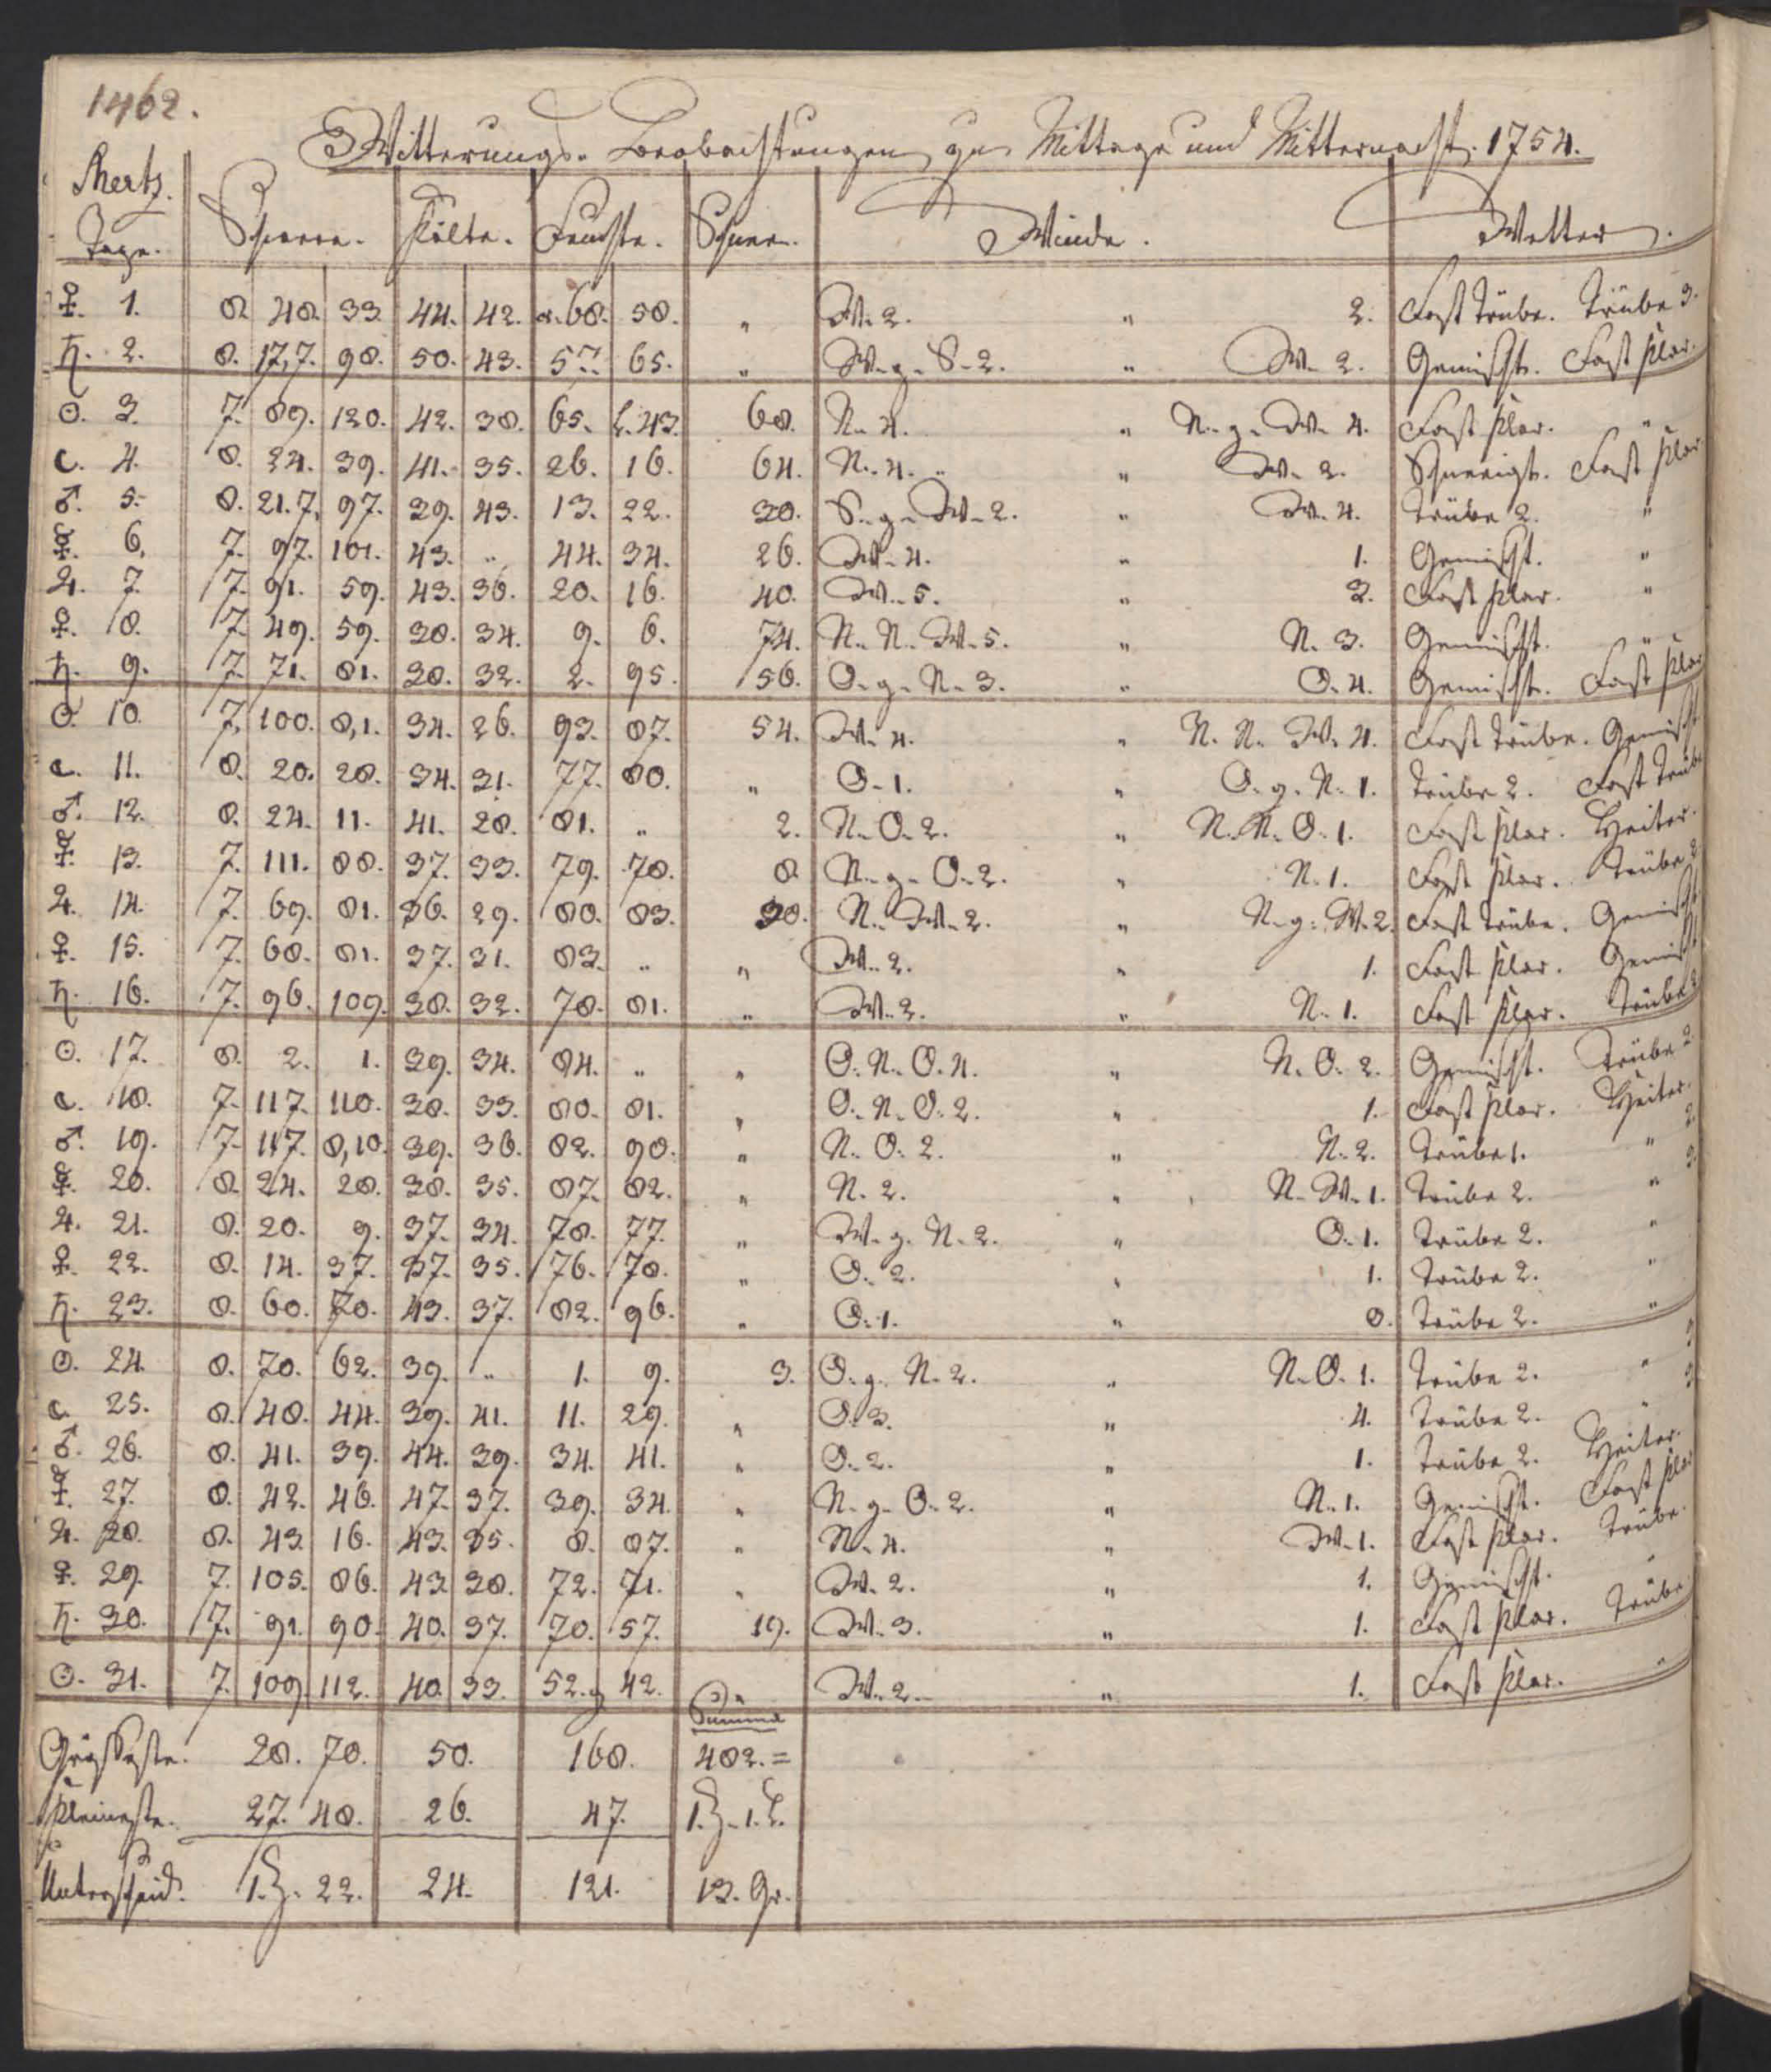 1462.
Witterungs-Beobachtungen zu Mittage und Mitternacht. 1754.
Mertz.
Tage. Schwere. Kälte. Feuchte. Schnee. Winde. Wetter.
♀. 1. 8. 48. 33. 44. 42. 68. 58. " W. 2. " 2. Fast Trübe. Trübe 3.
♄. 2. 8. 17,7. 98. 50. 43. 57. 65. " W. g. S. 2. " W. 2. Gemischt. Fast klar.
☉. 3. 7. 89. 120. 42. 38. 65. 43. 68. N. 4. " N. g. W. 4. Fast klar. "
☾. 4. 8. 34. 39. 41. 35. 26. 16. 64. N. 4. " W. 2. Schneeigt. Fast klar
♂. 5. 8. 21. 7, 97. 39. 43. 13. 22. 30. S. g. W. 2. " W. 4. Trübe 2. "
☿. 6. 7. 97. 101. 43. " 44. 34. 26. W. 4. " 1. Gemischt. "
♃. 7. 7. 91. 59. 43. 36. 20. 16. 40. W. 5. " 3. Fast klar. "
♀. 8. 7. 49. 59. 38. 34. 9. 6. 74. N. N. W. 5. " N. 3. Gemischt. "
♄. 9. 7. 71. 81. 38. 32. 2. 95. 56. O. g. N. 3. " O. 4. Gemischt. Fast klar
☉. 10. 7. 100. 8,1. 34. 26. 93. 87. 54. W. 4. " N. N. W. 4. Fast Trübe. Gemischt
☾. 11. 8. 20. 28. 34. 31. 77. 80. " O. 1. " O. g. N. 1. Trübe 2. Fast Trübe
♂. 12. 8. 24. 11. 41. 28. 81. " 2. N. O. 2. " N. N. O. 1. Fast klar. Heiter.
☿. 13. 7. 111. 88. 37. 33. 79. 78. 8. N. g. O. 2. " N. 1. Fast klar. Trübe 2
♃. 14. 7. 69. 81. 36. 29. 80. 83. 30. N. W. 2. " N. g. W. 2. Fast Trübe. Gemischt
♀. 15. 7. 68. 81. 37. 31. 83. " " W. 2. " 1. Fast klar. Gemischt
♄. 16. 7. 96. 109. 38. 32. 78. 81. " W. 2. " N. 1. Fast klar. Trübe 2
☉. 17. 8. 2. 1. 39. 34. 84. " " O. N. O. 4. " N. O. 2. Gemischt. Trübe 2.
☾. 18. 7. 117. 118. 38. 33. 80. 81. " O. N. O. 2. " 1. Fast klar. Heiter.
♂. 19. 7. 117. 8,10. 39. 36. 82. 90. " N. O. 2. " N. 2. Trübe 1. " 2.
☿. 20. 8. 24. 28. 38. 35. 87. 82. " N. 2. " N. W. 1. Trübe 2. " 3.
♃. 21. 8. 20. 9. 37. 34. 78. 77. " W. g. N. 2. " O. 1. Trübe 2. "
♀. 22. 8. 14. 37. 37. 35. 76. 78. " O. 2. " 1. Trübe 2. "
♄. 23. 8. 60. 70. 43. 37. 82. 96. " O. 1. " 0. Trübe 2. "
☉. 24. 8. 70. 62. 39. " 1. 9. 3. O. g. N. 2. " N. O. 1. Trübe 2. " 3
☾. 25. 8. 48. 44. 39. 41. 11. 29. " O. 3. " 4. Trübe 2. " 3
♂. 26. 8. 41. 39. 44. 39. 34. 41. " O. 2. " 1. Trübe 2. Heiter.
☿. 27. 8. 42. 46. 47. 37. 39. 34. " N. g. O. 2. " N. 1. Gemischt. Fast klar
♃. 28. 8. 43. 16. 43. 35. 8. 87. " N. 4. " W. 1. Fast klar. Trübe.
♀. 29. 7. 105. 86. 43. 38. 72. 71. " W. 2. " 1. Gemischt. "
♄. 30. 7. 91. 90. 40. 37. 70. 57. 19. W. 3. " 1. Fast klar. Trübe
☉. 31. 7. 109. 112. 40. 33. 52. 42. " W. 2. " 1. Fast klar. "
Summa
Grösseste. 28. 70. 50. 168. 482. =
Kleineste. 27. 48. 26. 47. 1. Z. 1. L.
Unterscheid. 1. Z. 22. 24. 121. 13. Gr.